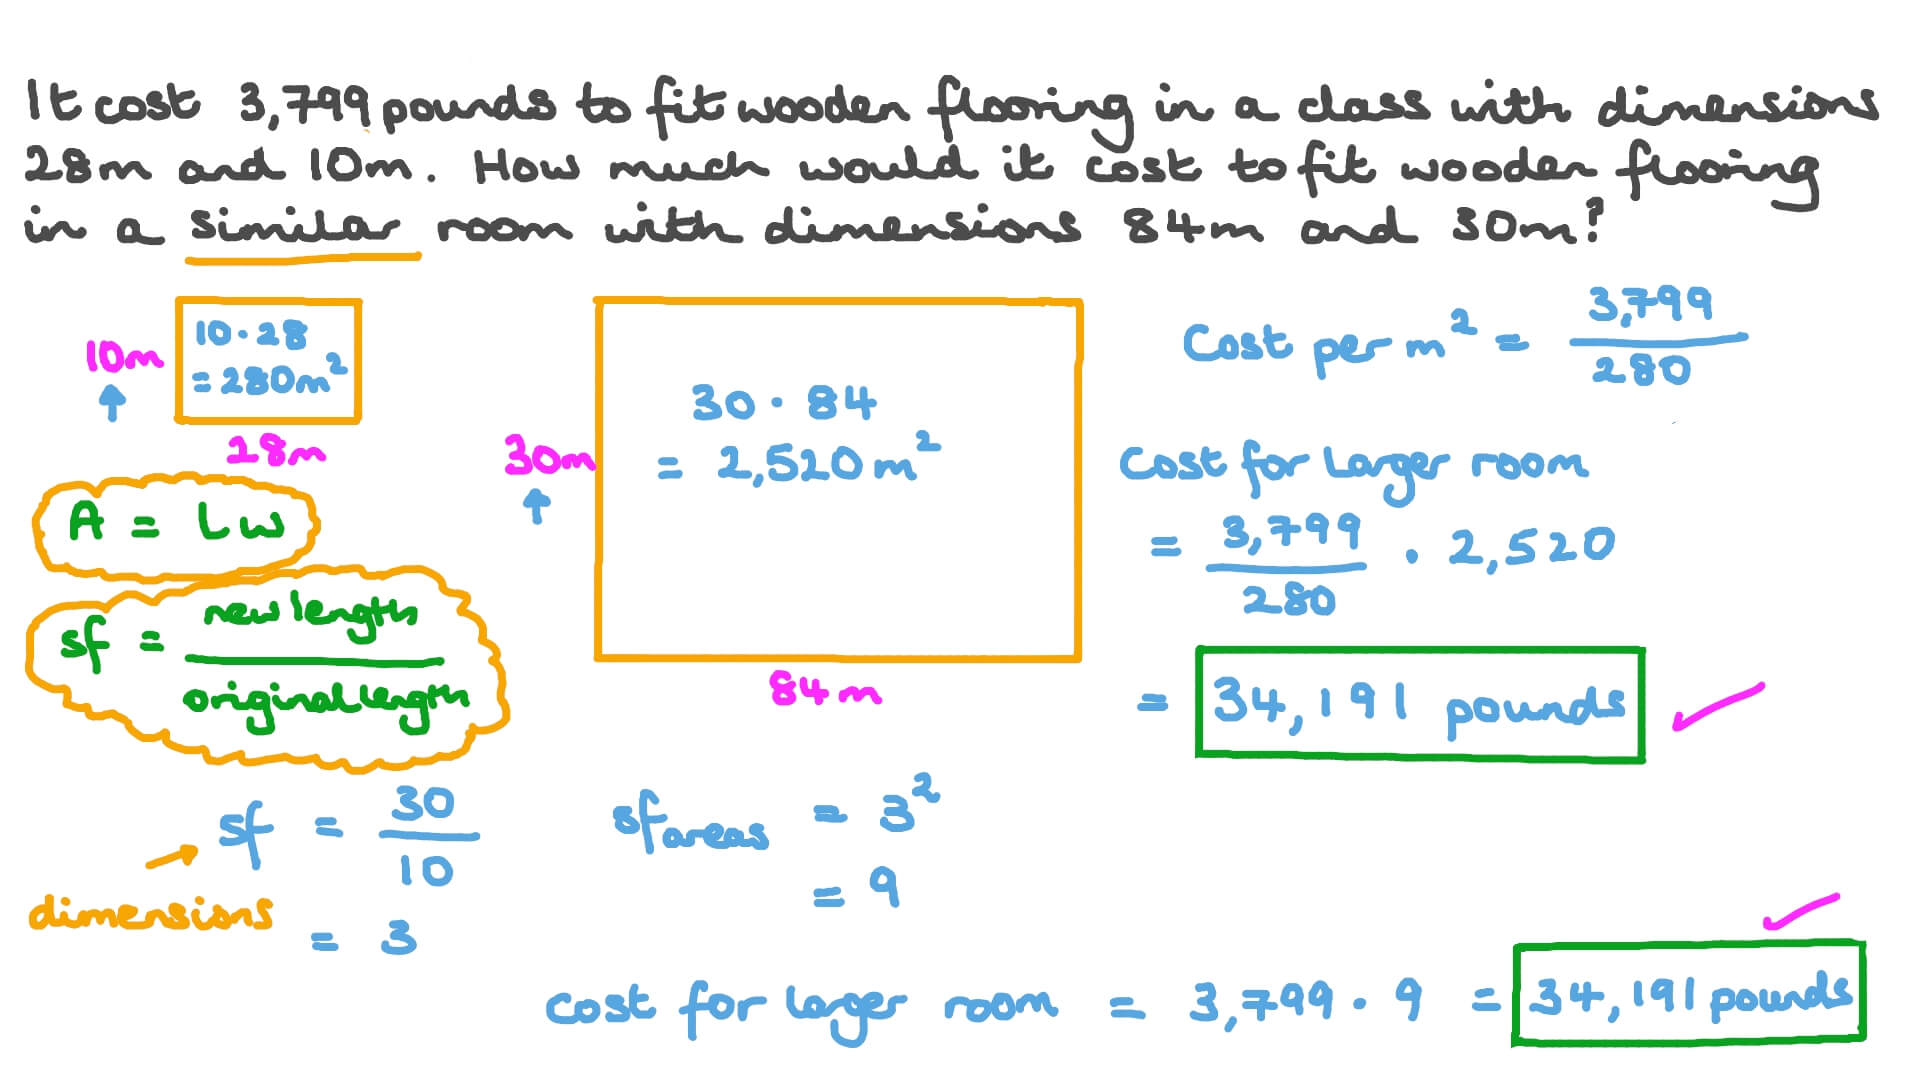 It cost 3,799 pounds to fit wooden flooring in a class with dimensions
28m and 10m. How much would it cost to fit wooden flooring
in a similar room with dimensions 84m and 30m?
10m
10·28
= 280m²
28m
A = Lw
sf = new length / original length
sf = 30/10
dimensions
= 3
30m
30·84
= 2,520m²
84m
sf areas = 3²
= 9
Cost per m² = 3,799/280
Cost for larger room
= 3,799/280 · 2,520
= 34,191 pounds
cost for larger room = 3,799·9 = 34,191 pounds